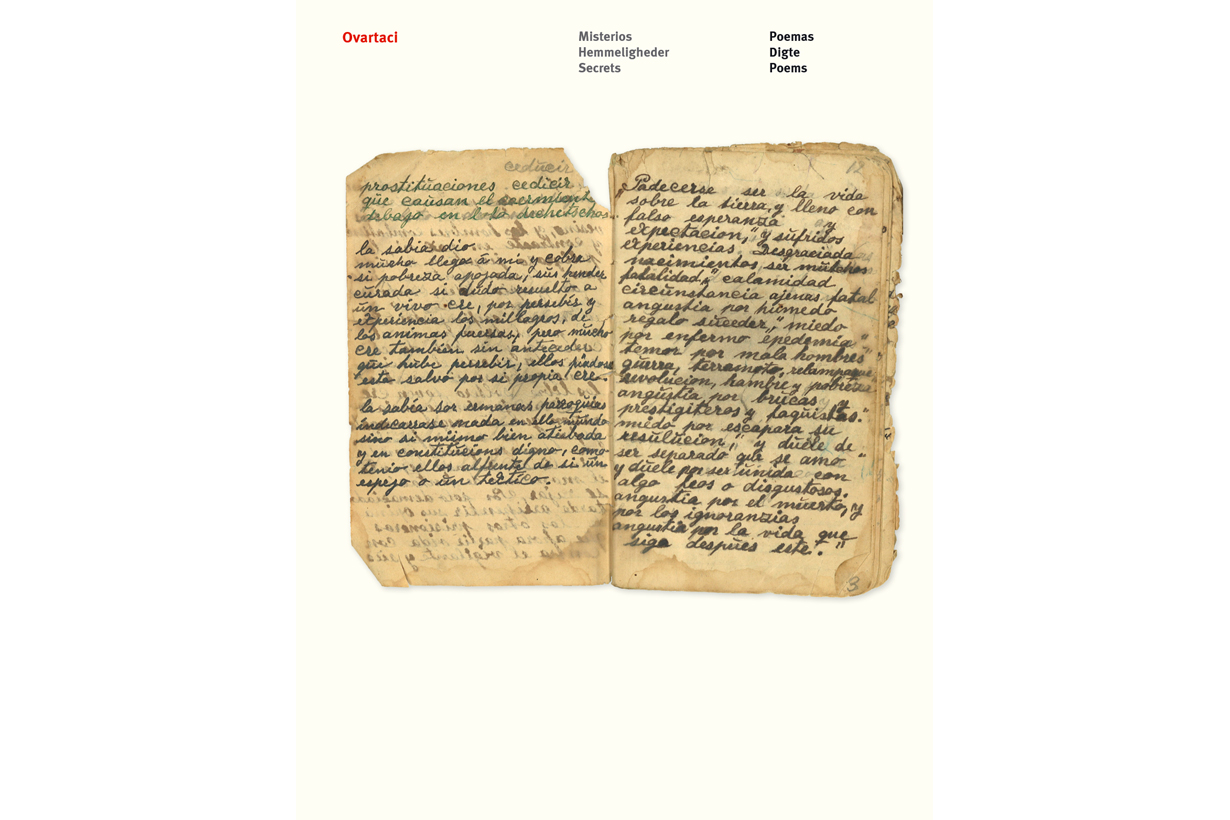 Ovartaci
Misterios
Hemmeligheder
Secrets
Poemas
Digte
Poems
ceducir
prostituaciones cedicir
que causan el
debajo en
la sabia dio.
mucho llega á mi y cobra
si pobreza apojada, sus
curada si dudo resuelto a
un vivo cre, por persebir y
experiencia los millagros, di
los animas puersas, pero mucho
cre tambien sin anteceder
qui hubi persebir, ellos
esta salvo por si propia cre.
la sabia sor ermanas paroquias
indicarrase nada en ello mundo
sino si mismo bien atisbada
y en constitucions digno, como
tenio ellos alfrente de si un
espejo o un tectico.
12
Padecerse ser la vida
sobre la tierra, y lleno con
falso esperanza y
expectacion," y sufridos
experiencias. Desgraciada
nacimientos, ser muttchos
fatalidad," calamidad
circunstancia ajenas fatal
angustia por humedo
regalo suceder," miedo
por enfermo "epedemia"
temor por mala hombres"
guerra, terramoto, relampague
revolucion, hambre y pobreza
angustia por brucas y
prestigiteros y taquistas."
miedo por escapara su
resulucion," y duele de
ser separado que se amo
y duele por ser unida con
algo feos o disgustosos.
angustia por el muerto, y
por los ignoranzias
angustia por la vida que
siga despues este."
3